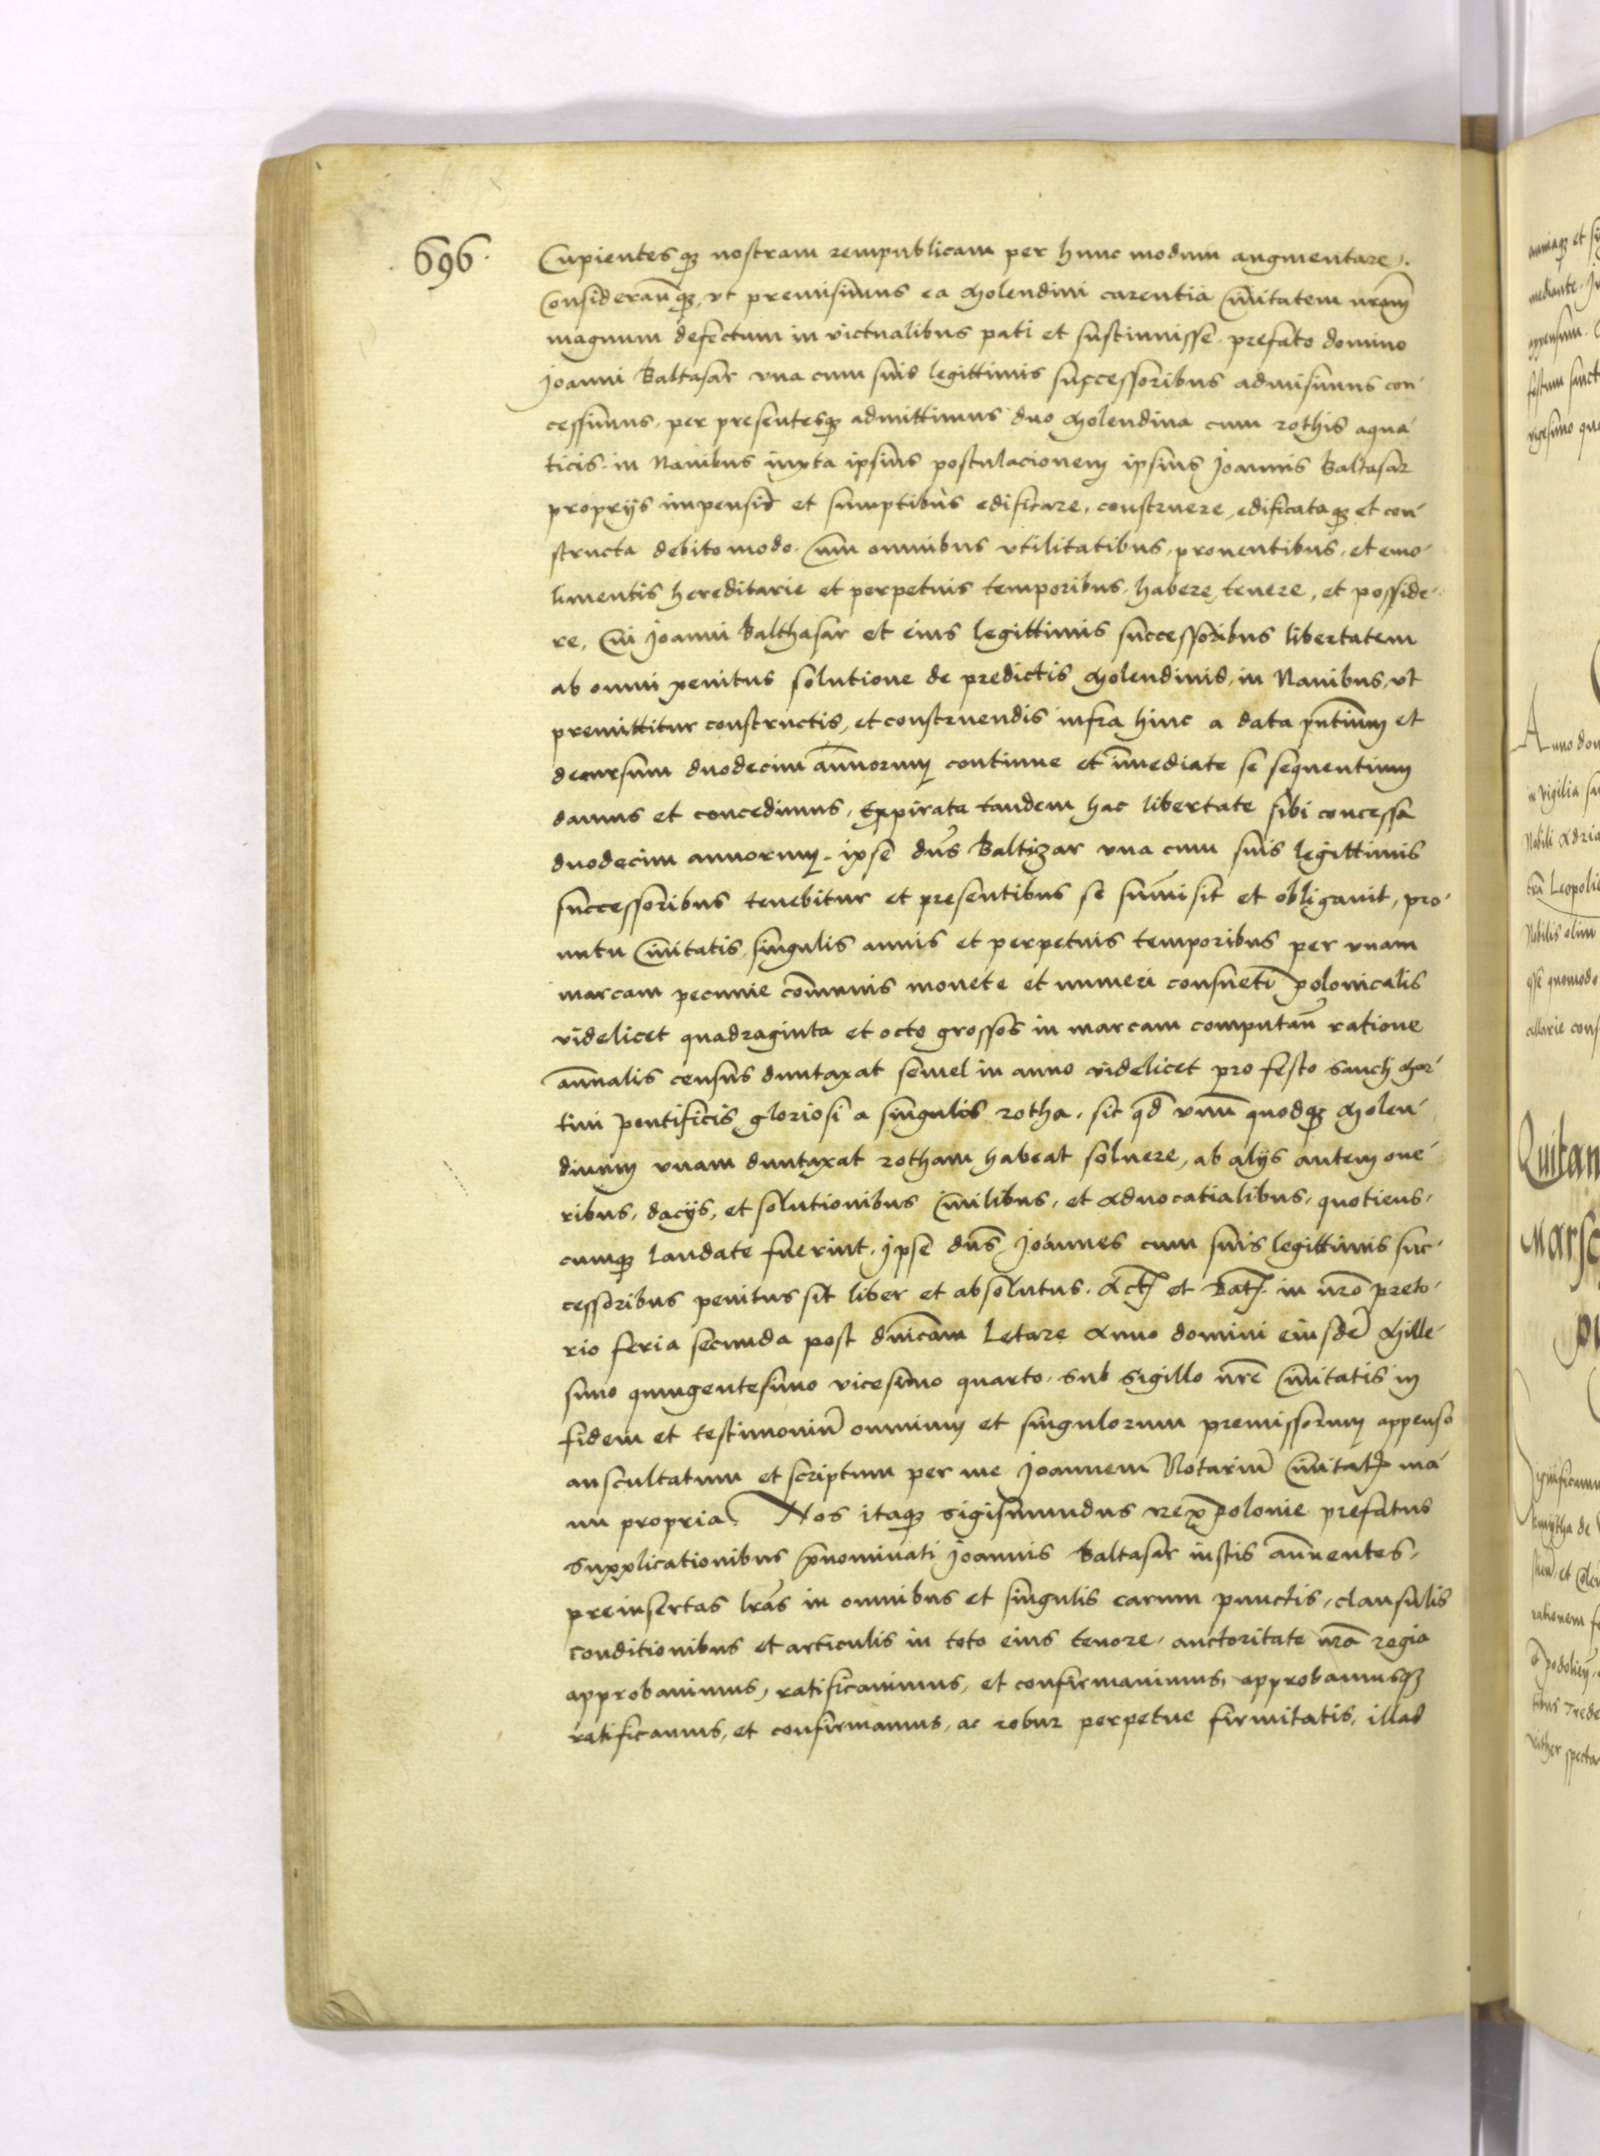 696.
Cupientesq3 nostram rempublicam per hunc modum augmentare.
Consideran̄q3, vt premisimus ea Molendini carentia Ciuitatem nram̄
magnum defectum in victualibus pati et sustinuisse. prefato domino
Joanni Baltasar vna cum suis legittimis successoribus admisimus con-
cessimus, per presentesq3 admittimus duo Molendina cum rothis aqua-
ticis in Nauibus iuxta ipsius postulacionem ipsius Joannis Baltasar
proprijs impensis et sumptibus edificare, construere, edificataq3 et con-
structa debito modo. Cum omnibus vtilitatibus, prouentibus, et emo-
limentis hereditarie et perpetuis temporibus, habere, tenere, et posside-
re, Cui Joanni Balthasar et eius legittimis successoribus libertatem
ab omni penitus solutione de predictis Molendinis, in Nauibus, vt
premittitur constructis, et construendis infra hinc a data pn̄tium et
decursum duodecim an̄norum continue et im̄mediate se sequentium
damus et concedimus, Expirata tandem hac libertate sibi concessa
duodecim annorum. ipse dn̄s Baltizar vna cum suis legittimis
successoribus tenebitur et presentibus se sum̄isit et obligauit, pro-
uentu Ciuitatis, singulis annis et perpetuis temporibus per vnam
marcam pecunie com̄unis monete et numeri consueti polonicalis
videlicet quadraginta et octo grossos in marcam computan̄ ratione
an̄nalis census duntaxat semel in anno videlicet pro festo sancti Mar-
tini Pontificis gloriosi a singulis rotha. sic qd̄ vnū quodq3 Molen-
dinum vnam duntaxat rotham habeat soluere, ab alijs autem one-
ribus, dacijs, et solutionibus Ciuilibus, et Aduocatialibus, quotiens-
cumq3 laudate fuerint. ipse dn̄s Joannes cum suis legittimis suc-
cessoribus penitus sit liber et absolutus. Act̄ et Dat̄ in nrō preto-
rio feria secunda post dnīcam Letare Anno domini eiusdē Mille-
simo quingentesimo vicesimo quarto. sub Sigillo nrē Ciuitatis in
fidem et testimoniū omnium et singulorum premissorum appenso
auscultatum et scriptum per me Joannem Notariū Ciuitat̄ ma-
nu propria. Nos itaq3 Sigismundus rex polonie prefatus
Supplicationibus p̄nominati Joannis Baltasar iustis an̄nuentes,
preinsertas lrās in omnibus et singulis earum punctis, clausulis
conditionibus et articulis in toto eius tenore, auctoritate nrā regia
approbauimus, ratificauimus, et confirmauimus, approbamusq3
ratificamus, et confirmamus, ac robur perpetue firmitatis, illas
Anno dom
in vigilia
Nobilis olim
Quitan